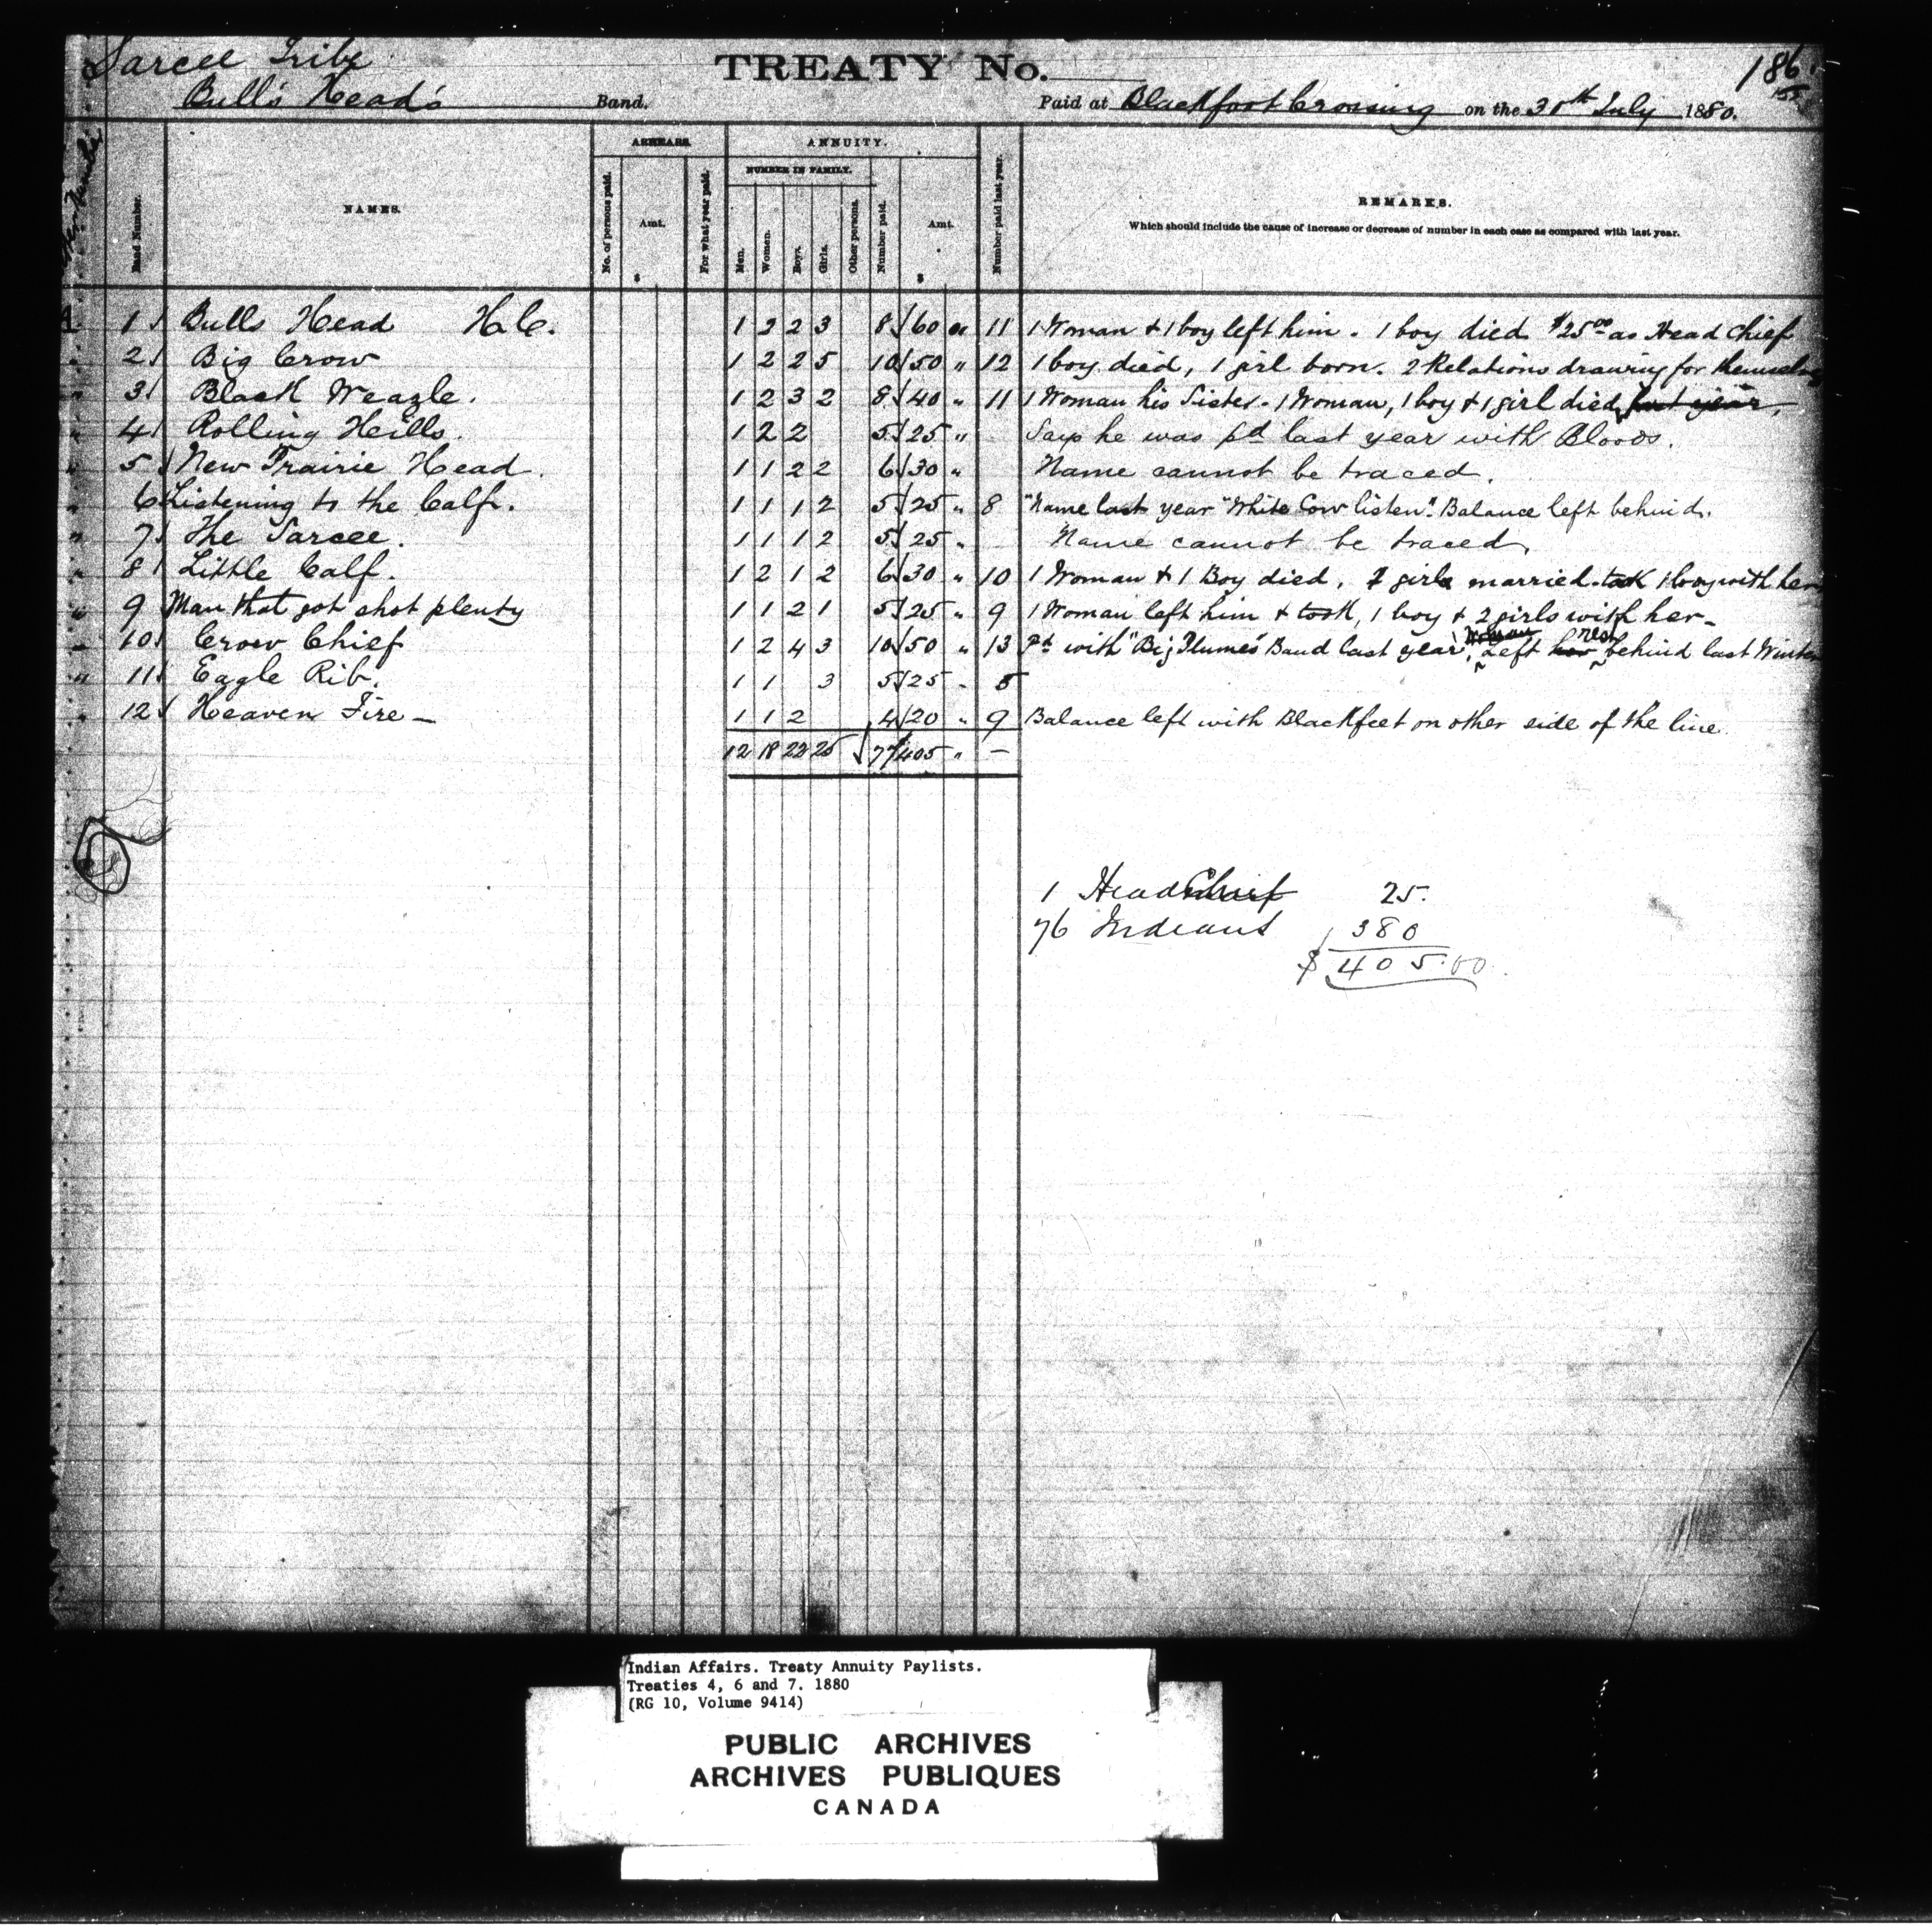 Sarcee Tribe
TREATY No.
186
Bull's Head's Band.
Paid at Blackfoot Crossing on the 30th July 1880.
Band Number.
NAMES.
ARREARS.
No. of persons paid.
Amt.
$
For what year paid.
ANNUITY.
NUMBER IN FAMILY.
Men.
Women.
Boys.
Girls.
Other persons.
Number paid.
Amt.
$
Number paid last year.
REMARKS.
Which should include the cause of increase or decrease of number in each case as compared with last year.
1 Bulls Head H.C. 1 2 2 3 8 60 " 11 1 Woman & 1 boy left him. 1 boy died $25.00 as Head Chief
2 Big Crow 1 2 2 5 10 50 " 12 1 boy died, 1 girl born. 2 Relations drawing for themselves
3 Black Weazle. 1 2 3 2 8 40 " 11 1 Woman his Sister. 1 Woman, 1 boy & 1 girl died last year,
4 Rolling Heills. 1 2 2 5 25 " Says he was pd last year with Bloods.
5 New Prairie Head. 1 1 2 2 6 30 " Name cannot be traced.
6 Listening to the Calf. 1 1 1 2 5 25 " 8 "Name last year "White Cow listen". Balance left behind.
7 The Sarcee. 1 1 1 2 5 25 " Name cannot be traced.
8 Little Calf. 1 2 1 2 6 30 " 10 1 Woman & 1 Boy died, 1 girl married took 1 boy with her
9 Man that got shot plenty 1 1 2 1 5 25 " 9 1 Woman left him & took, 1 boy & 2 girls with her-
10 Crow Chief 1 2 4 3 10 50 " 13 Pd with "Big Plumes" Band last year, Woman Left her rest behind last Winter
11 Eagle Rib. 1 1 3 5 25 " 5
12 Heaven Fire - 1 1 2 4 20 " 9 Balance left with Blackfeet on other side of the line
12 18 22 25 77 405 " -
1 Head Chief 25.
76 Indians 380
$405.00
Indian Affairs. Treaty Annuity Paylists.
Treaties 4, 6 and 7. 1880
(RG 10, Volume 9414)
PUBLIC ARCHIVES
ARCHIVES PUBLIQUES
CANADA